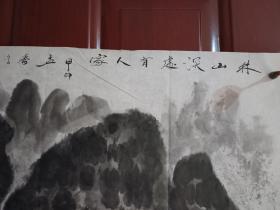 林山深處有人家
甲申孟春